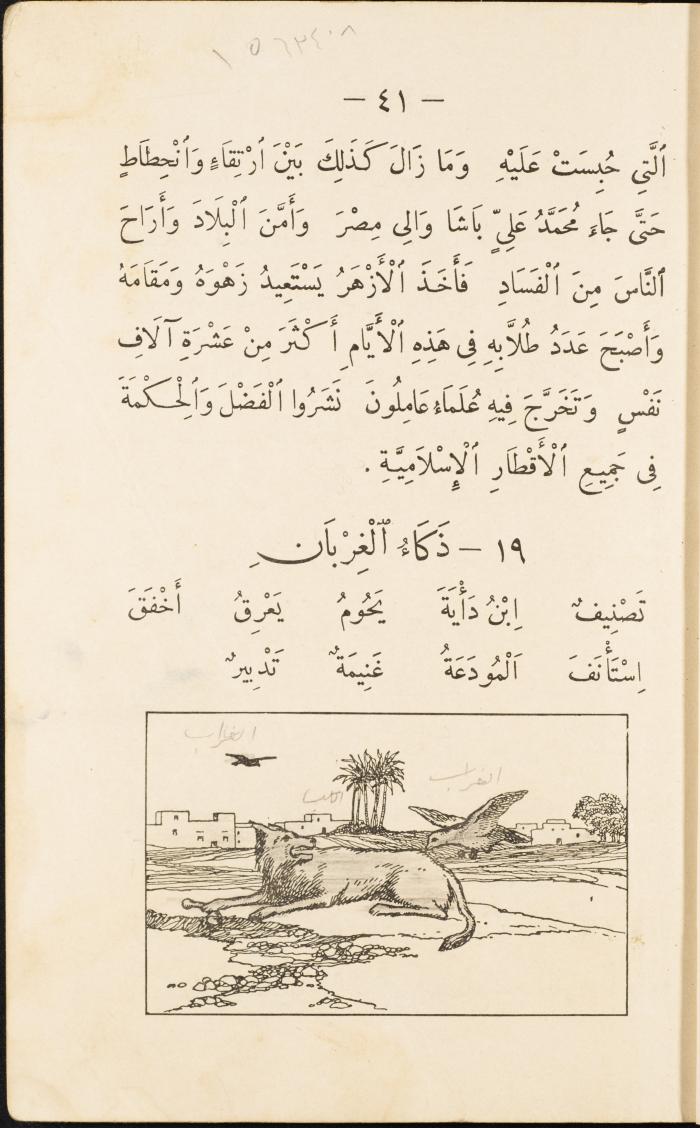 ١٥٦٣٤٠٨
— ٤١ —
ٱلَّتِي حُبِسَتْ عَلَيْهِ وَمَا زَالَ كَذَلِكَ بَيْنَ ٱرْتِقَاءٍ وَٱنْحِطَاطٍ
حَتَّى جَاءَ مُحَمَّدُ عَلِيٍّ بَاشَا وَالِى مِصْرَ وَأَمَّنَ ٱلْبِلَادَ وَأَرَاحَ
ٱلنَّاسَ مِنَ ٱلْفَسَادِ فَأَخَذَ ٱلْأَزْهَرُ يَسْتَعِيدُ زَهْوَهُ وَمَقَامَهُ
وَأَصْبَحَ عَدَدُ طُلَّابِهِ فِى هَذِهِ ٱلْأَيَّامِ أَكْثَرَ مِنْ عَشْرَةِ آلَافِ
نَفْسٍ وَتَخَرَّجَ فِيهِ عُلَمَاءُ عَامِلُونَ نَشَرُوا ٱلْفَضْلَ وَٱلْحِكْمَةَ
فِى جَمِيعِ ٱلْأَقْطَارِ ٱلْإِسْلَامِيَّةِ .
١٩ — ذَكَاءُ ٱلْغِرْبَانِ
تَصْنِيفٌ اِبْنُ دَأْيَةَ يَحُومُ يَعْرِقُ أَخْفَقَ
اِسْتَأْنَفَ اَلْمُودَعَةُ غَنِيمَةٌ تَدْبِيرٌ
الغراب
الغراب
الكلب